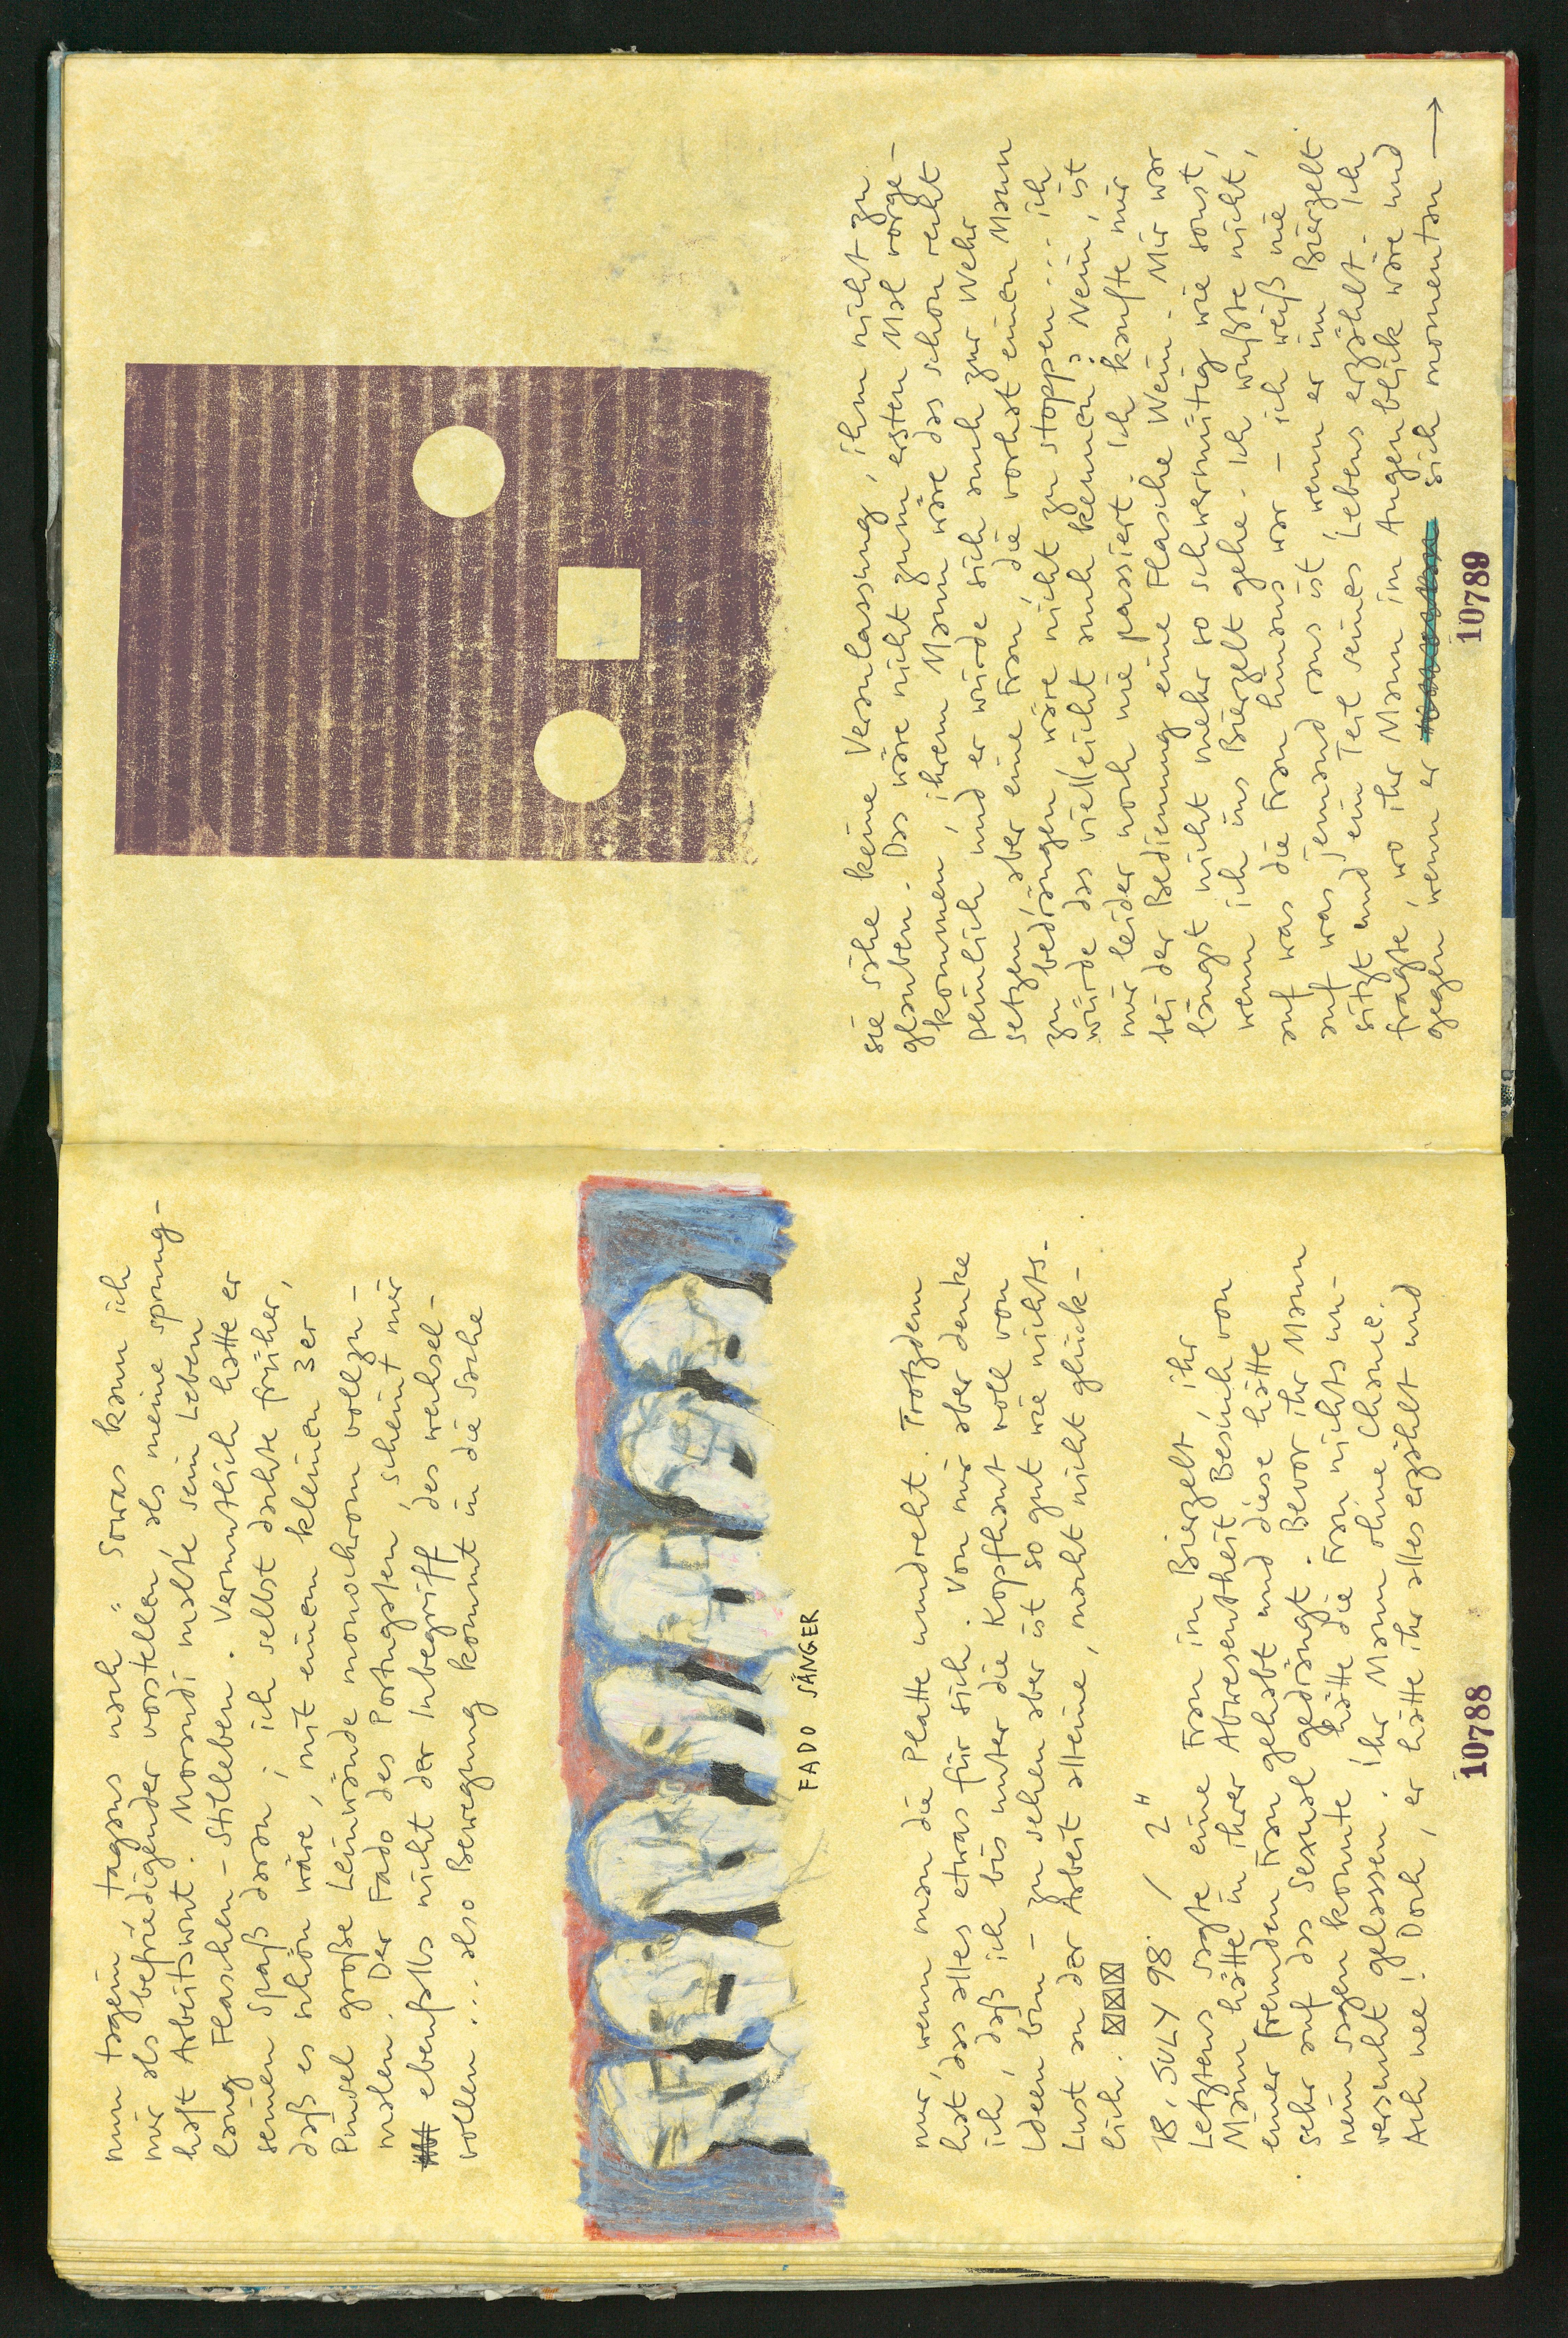 nun tagein tagaus nach " Sowas kann ich
mir als befriedigender vorstellen als meine sprung-
haft Arbeitswut. Morandi malte sein Leben
lang Flaschen-Stilleben. Vermutlich hatte er
seinen Spaß daran; ich selbst dachte früher,
daß es schön wäre, mit einem kleinen 3er
Pinsel große Leinwände monochrom vollzu-
malen. Der Fado des Portugalen, scheint mir
ebenfalls nicht der Inbegriff des wechsel-
vollen... also Bewegung kommt in die Sache
FADO SÄNGER
nur, wenn man die Platte umdreht. Trotzdem
hat das alles etwas für sich. Von mir aber denke
ich, daß ich bis unter die Kopfhaut voll von
Ideen bin - zu sehen aber ist so gut wie nichts.
Lust an der Arbeit alleine, macht nicht glück-
lich.
18. JULY 98. / 2"
Letztens sagte eine Frau im Bierzelt, ihr
Mann hätte in ihrer Abwesentheit Besuch von
einer fremden Frau gehabt und diese hätte
sehr auf das Sexual gedrängt. Bevor ihr Mann
nein sagen konnte, hätte die Frau nichts un-
versucht gelassen. Ihr Mann ohne Chance.
Ach nee! Doch, er hätte ihr alles erzählt und
10788
sie sähe keine Veranlassung, ihm nicht zu
glauben. Das wäre nicht zum ersten Mal vorge-
kommen, ihrem Mann wäre das schon recht
peinlich und er würde sich auch zur Wehr
setzen, aber eine Frau, die vorhat einen Mann
zu bedrängen wäre nicht zu stoppen... ich
würde das vielleicht auch kennen? Nein, ist
mir leider noch nie passiert. Ich kaufte mir
bei der Bedienung eine Flasche Wein. Mir war
längst nicht mehr so schwermütig wie sonst,
wenn ich ins Bierzelt gehe. Ich wußte nicht,
auf was die Frau hinaus war - ich weiß nie
auf was jemand raus ist, wenn er im Bierzelt
sitzt und ein Teil seines Lebens erzählt. Ich
fragte, wo ihr Mann im Augenblick wäre und
gegen wenn er sich momentan →
10789